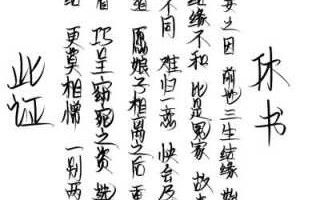 休书
妾之因 前世三生结缘 始
结缘不和 比是冤家 故来
不同 难归一意 快会及
愿娘子相离之后 重
巧呈窈窕之资 选
更莫相憎 一别两
此证